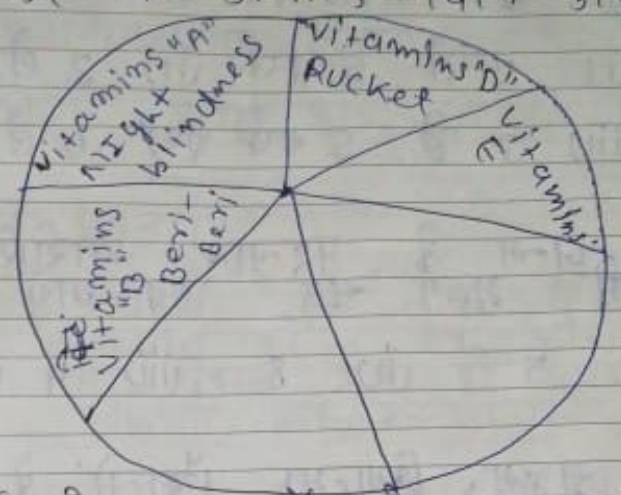 vitamins "A"
Night
blindness
vitamins "D"
Rucket
vitamins
E
vitamins
"B"
Beri-
Beri